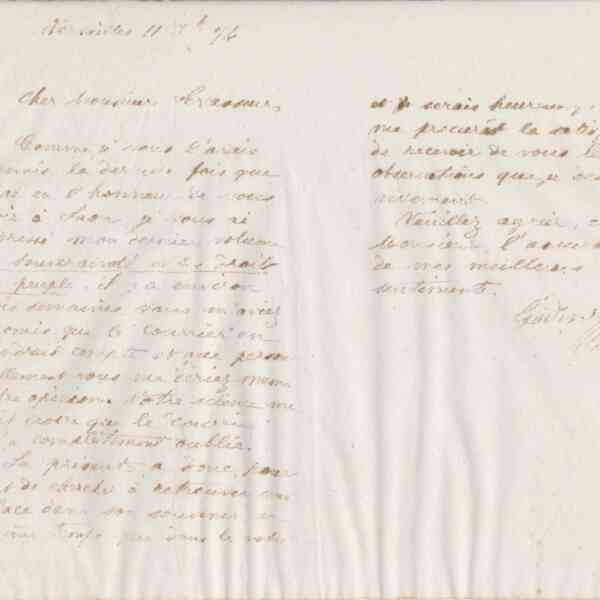 Versailles 11 7b 74
Cher Monsieur
Comme je vous l'avais
promis la dernière fois que
j'ai eu l'honneur de vous
voir à Laon je vous ai
adressé mon dernier volume
souveraineté et les Droits
peuple. il y a environ
semaines vous m'aviez
promis que le Courrier en
rendrait compte et que person
nellement vous me écriez même
votre opinion. Votre silence me
fait croire que le Courrier
a complètement oublié.
La présente a donc pour
but de chercher à retrouver une
place dans son souvenir en
même temps que dans le votre
et je serais heureux,
me procurât la satis
de recevoir de vous les
observations que je
Veuillez agréer,
Monsieur, l'assurance
de mes meilleurs
sentiments.
Godin